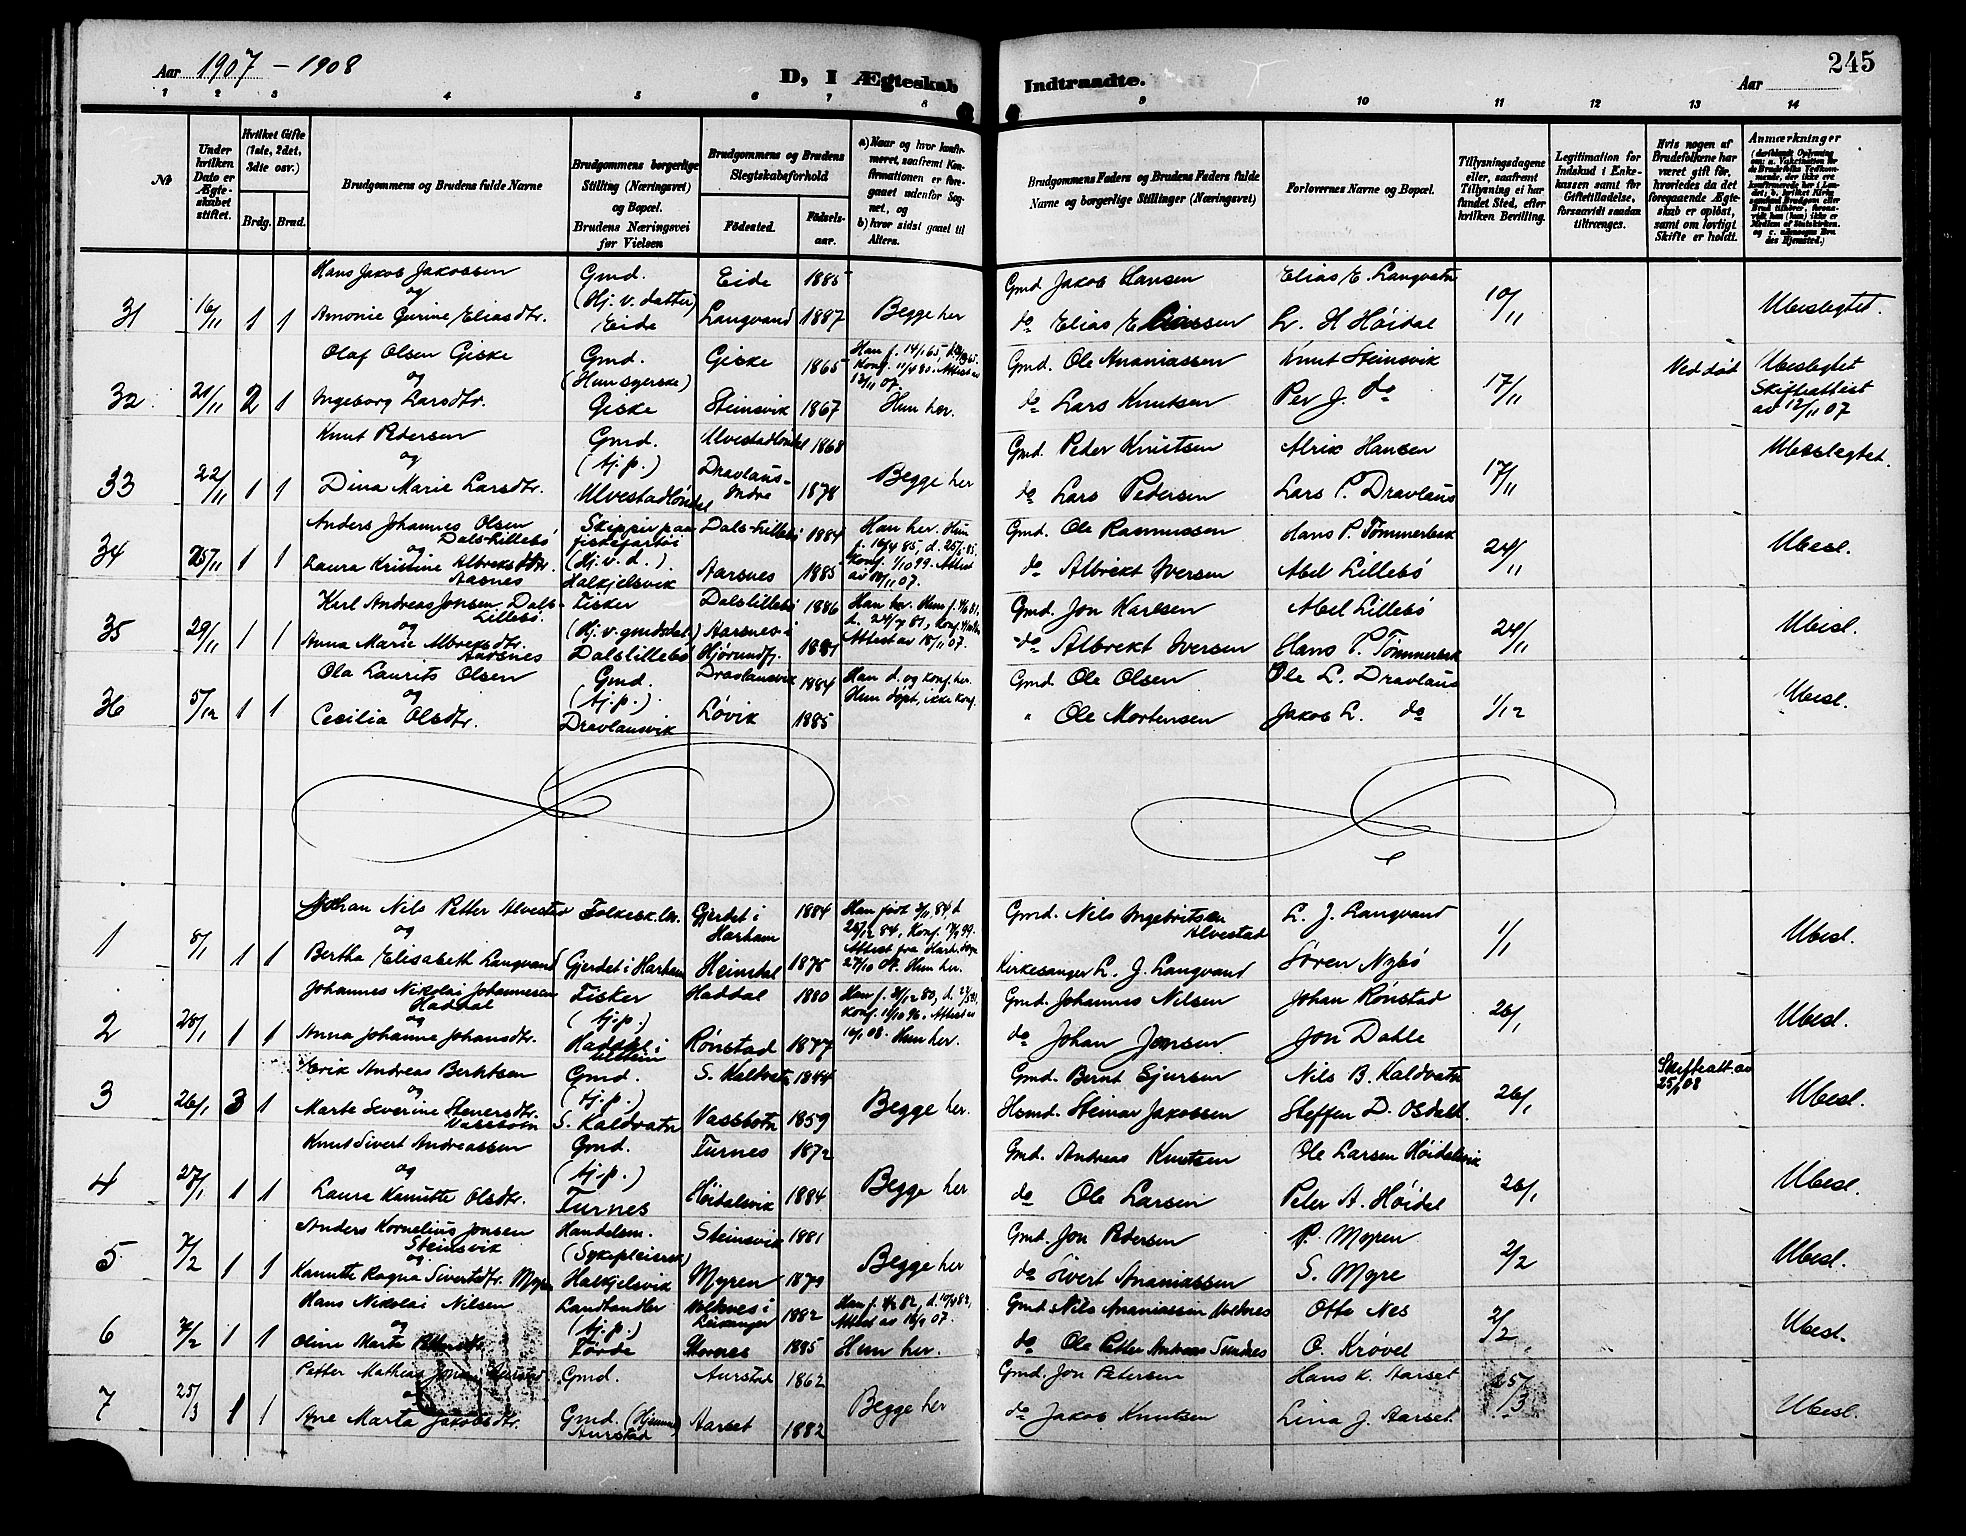 Aar 1907 - 1908
D, I Ægteskab Indtraadte.
Aar
245
1 2 3 4 5 6 7 8 9 10 11 12 13 14
No
Under hvilken Dato er Ægteskabet stiftet.
Hvilket Gifte (1ste, 2det, 3die osv.)
Brdg. Brud.
Brudgommens og Brudens fulde Navne
Brudgommens borgerlige Stilling (Næringsvei) og Bopæl. Brudens Næringsvei før Vielsen
Brudgommens og Brudens Slegtskabsforhold
Fødested. Fødselsaar.
a) Naar og hvor konfirmeret, saafremt Konfirmationen er foregaaet udenfor Sognet, og
b) hvor sidst gaaet til Alters.
Brudgommens Faders og Brudens Faders fulde Navne og borgerlige Stillinger (Næringsvei)
Forlovernes Navne og Bopæl.
Tillysningsdagene eller, saafremt Tillysning ei har fundet Sted, efter hvilken Bevilling.
Legitimation for Indskud i Enkekassen samt for Giftetilladelse, forsaavidt saadan tiltrænges.
Hvis nogen af Brudefolkene har været gift før, hvorledes da det foregaaende Ægteskab er opløst, samt om lovligt Skifte er holdt.
Anmærkninger
Hans Jakob Jakobsen Gmd. Eide 1885 Gmd Jakob Hansen Elias E. Langvatn
31 16/11 1 1 og (Hj. v. datter) Begge her 10/11 Ubeslegtet.
Amonie Gurine Eliasdtr. Eide Langvand 1887 do Elias Eliassen L. H Høidal
Olaf Olsen Giske Gmd. Giske 1865 Han f. 14/1 65, Gmd. Ole Ananiassen Knut Steinsvik Ved død Ubeslegtet
32 21/11 2 1 og (Hunsyerske) Konf. 11/4 80. Attest av 12/11 07. 17/11 Skifteattest
Ingeborg Larsdtr. Giske Steinsvik 1867 Hun her. do Lars Knutsen Per J. do av 12/11 07
Knut Pedersen Gmd. 1868 Gmd. Peder Knutsen Alrik Hansen Ubeslegtet.
33 22/11 1 1 og (Tj.p.) Dravlaus- Indre Begge her 17/11
Dina Marie Larsdtr. 1878 do Lars Pedersen Lars P. Dravlaus
Anders Johannes Olsen Dals-Lillebø Skipper paa fiskefartøi Dals-Lillebø 1884 Han her. Hun Gmd. Ole Rasmussen Hans P. Tømmerbak
34 25/11 1 1 og (Hj. v. d.) f. 16/4 85, d. 25/5 85. Konf. 1/10 99. Attest 24/11 Ubesl.
Laura Kristine Albreksdtr. Aarsnes Halkjelsvik Aarsnes 1885 do Albrekt Iversen Abel Lillebø
Karl Andreas Jonsen Dals-Lillebø. Fisker Dalslillebø 1886 Han her. Gmd. Jon Karlsen Abel Lillebø
35 29/11 1 1 og Aarsnes i Attest av 18/11 07. 24/11 Ubesl.
Anna Marie Albreksdtr. Aarsnes Dalslillebø Hjørundfj. 1881 do Albrekt Iversen Hans P. Tømmerbak
Ola Laurits Olsen Gmd. Dravlausvik 1884 Han d. og konf. her. Gmd Ole Olsen Ole L. Dravlaus
36 5/12 1 1 og (Tj.p.) Hun døpt, ikke konf. 1/12 Ubesl.
Cecilia Olsdtr. Dravlausvik Løvik 1885 " Ole Mortensen Jakob L. do
Johan Nils Petter Alvestad Folkesk.lær. Gjerdet i Harham 1884 Han født 3/11 84, d. Gmd. Nils Ingebritsen Alvestad L. J. Langvand
1 8/1 1 1 og 26/12 84, Konf. 1/1 Ubesl.
Bertha Elisabeth Langvand Gjerdet i Harham Heimdal 1875 Hun her. Kirkesanger L. J. Langvand Søren Nybø
Johannes Nikolai Johannesen Haddal Fisker Haddal 1880 Gmd. Johannes Nilsen Johan Rønstad
2 25/1 1 1 og (Tj.p.) 26/1 Ubesl.
Anna Johanna Johansdtr. Haddal i Ulstein Rønstad 1877 Hun her. do Johan Jensen Jon Dahle
Erik Andreas Berntsen Gmd. S. Kaldvatn 1844 Gmd. Bernt Sjursen Nils B. Kaldvatn Skifteatt. av 25/1 08
3 26/1 3 1 og (Tj.p.) Begge her. 26/1 Ubesl.
Marte Severine Steinersdtr. Vassbotn S. Kaldvatn Vassbotn 1859 Hsmd. Steinar Jakobsen Steffen D. Osdal.
Knut Sivert Andreassen Gmd. Furnes 1872 Gmd. Andreas Knutsen Ole Larsen Høidalsvik
4 27/1 1 1 og (Tj.p.) Begge her 26/1 Ubesl.
Laura Kanutte Olsdtr. Furnes Høidalsvik 1884 do Ole Larsen Peter A. Høidal
Anders Kornelius Jonsen Steinsvik Handelsm. Steinsvik 1881 Gmd. Jon Pedersen P. Myren
5 7/2 1 1 og (Sykepleiersk) Begge her 2/2 Ubesl.
Kanutte Ragna Sivertsdtr. Myren Halkjelsvik Myren 1879 do Sivert Ananiassen S. Myre
Hans Nikolai Nilsen Landhandler Voldnes i 1882 Gmd. Nils Ananiassen Voldnes Otto Nes
6 7/2 1 1 og (Tj.p.) Attest av 2/2 Ubesl.
Oline Marta Førde 1885 Hun her. do Ole Petter Andreas O. Krøvel
Petter Mathias Jonsen Aurstad Gmd. Aurstad 1862 Gmd. Jon Petersen Hans K. Aarset
7 25/3 1 1 og Gmd. Begge her 15/3 Ubesl.
Ane Marta Jakobsdtr. Aurstad Aarset 1882 do Jakob Knutsen Lina J. Aarset